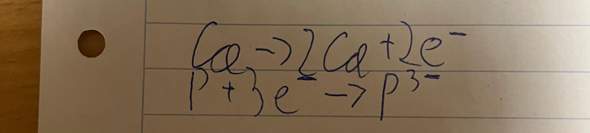 Ca → 2Ca + 2e⁻
P + 3e⁻ → P³⁻